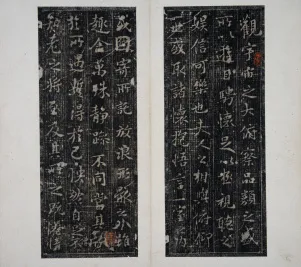 觀宇宙之大俯察品類之盛
所以遊目騁懷足以極視聽之
娛信可樂也夫人之相與俯仰
一世或取諸懷抱悟言一室之內
或因寄所託放浪形骸之外雖
趣舍萬殊靜躁不同當其欣
於所遇暫得於己快然自足不
知老之將至及其所之既惓情